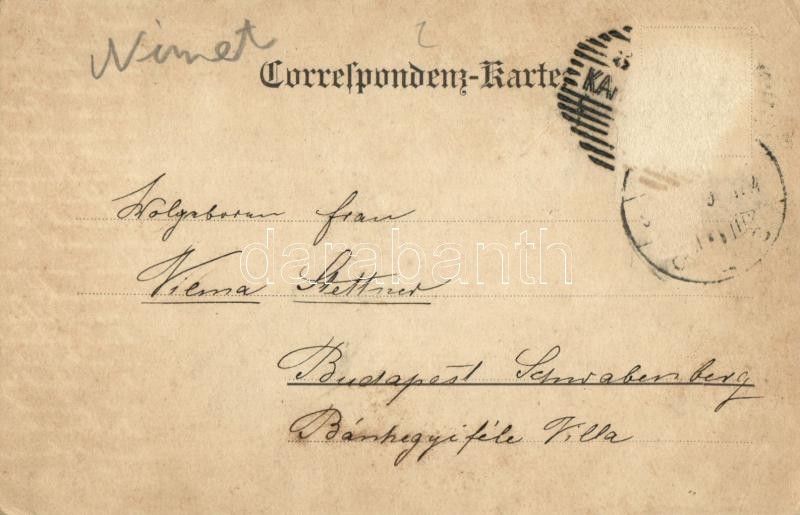 Nimet
Correspondenz-Karte
KA
Wolgeboren frau
Vilma Stettner
Budapest Schwabenberg
Bánhegyiféle Villa
darabanth